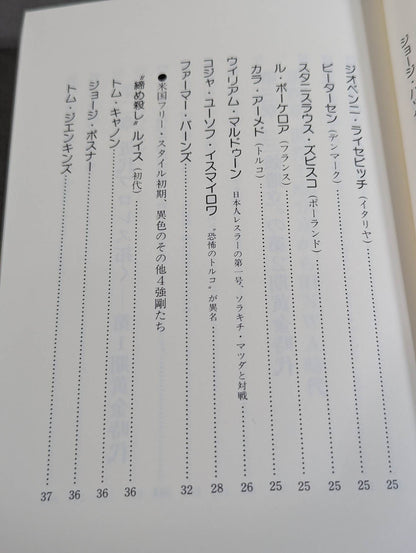 ジョージ・
ジオベンニ・ライセビッチ（イタリヤ）……25
ピーターセン（デンマーク）……25
スタニスラウス・ズビスコ（ポーランド）……25
ル・ボーケロア（フランス）……25
カラ・アーメド（トルコ）……25
ウィリアム・マルドゥーン 日本人レスラーの第一号、ソラキチ・マツダと対戦……26
コジャ・ユーソフ・イスマイロワ “恐怖のトルコ”が異名……28
ファーマー・バーンズ……32
●米国フリー・スタイル初期、異色のその他4強剛たち
“締め殺し”ルイス（初代）……36
トム・キャノン……36
ジョージ・ボスナー……36
トム・ジェンキンズ……37